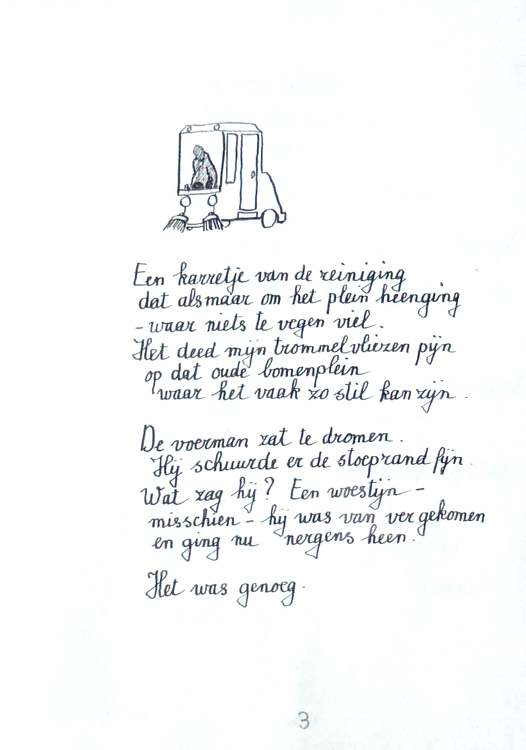 Een karretje van de reiniging
dat alsmaar om het plein heenging
- waar niets te vegen viel.
Het deed mijn trommelvliezen pijn
op dat oude bomenplein
waar het vaak zo stil kan zijn.
De voerman zat te dromen.
Hij schuurde er de stoeprand fijn
Wat zag hij? Een woestijn -
misschien - hij was van ver gekomen
en ging nu nergens heen.
Het was genoeg.
3